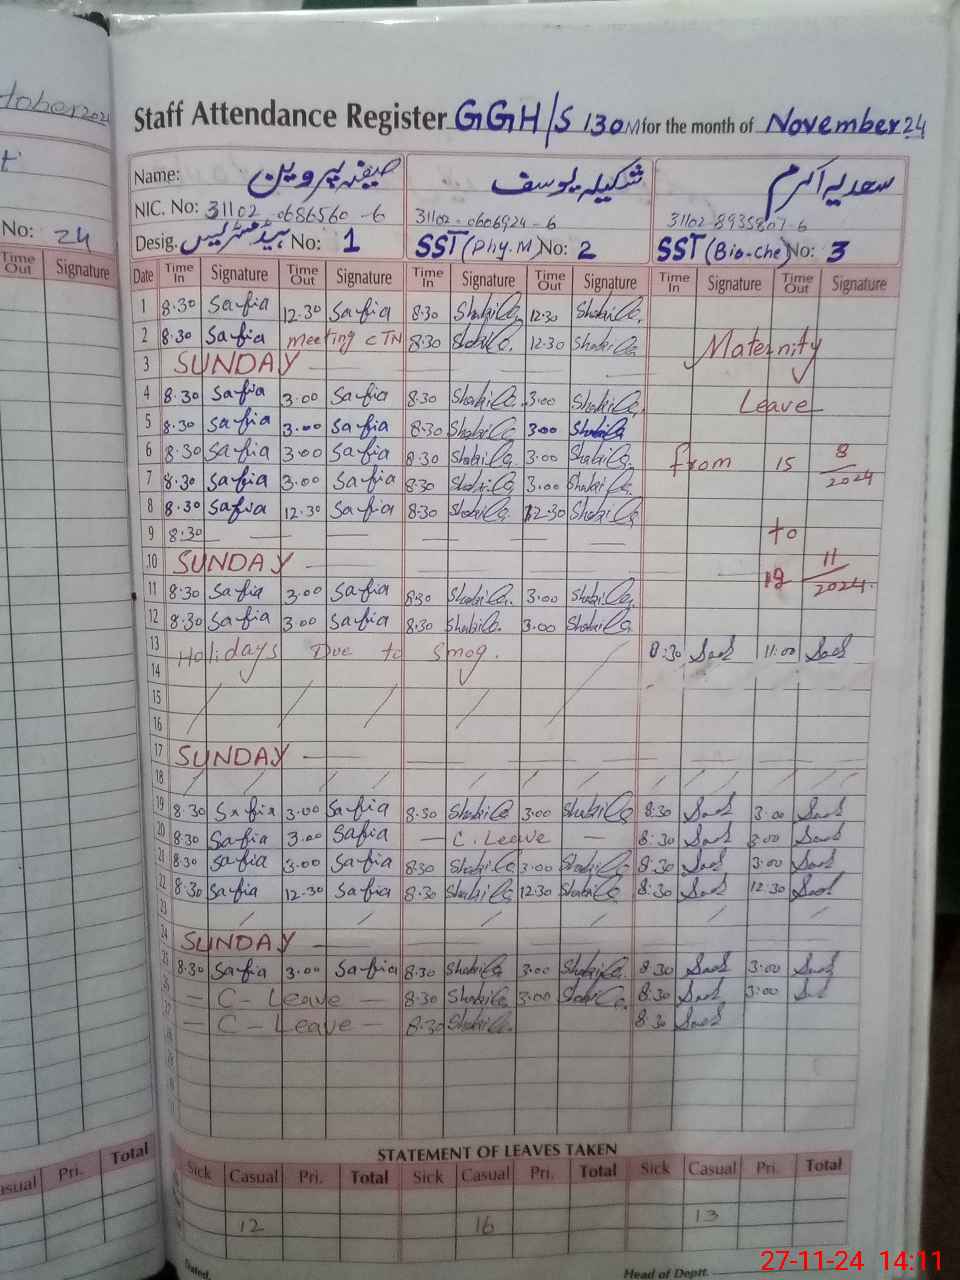 tober 2024
No: 24
Time Out Signature
Staff Attendance Register GGH/S 130M for the month of November 24
Name: صفیہ پروین شکیلہ یوسف سعدیہ اکرم
NIC. No: 31102-0686560-6 31102-0606924-6 31102-8935807-6
Desig. ہیڈ مسٹریس No: 1 SST (Phy.M) No: 2 SST (Bio-Che) No: 3
Date Time In Signature Time Out Signature Time In Signature Time Out Signature Time In Signature Time Out Signature
1 8.30 Safia 12.30 Safia 8.30 Shakila 12.30 Shakila
2 8.30 Safia meeting CTN 8.30 Shakila 12.30 Shakila Maternity
3 SUNDAY
4 8.30 Safia 3.00 Safia 8.30 Shakila 3.00 Shakila Leave
5 8.30 Safia 3.00 Safia 8.30 Shakila 3.00 Shakila
6 8.30 Safia 3.00 Safia 8.30 Shakila 3.00 Shakila from 15 8/2024
7 8.30 Safia 3.00 Safia 8.30 Shakila 3.00 Shakila
8 8.30 Safia 12.30 Safia 8.30 Shakila 12.30 Shakila
9 8.30 — — — — — — — to
10 SUNDAY 11/2024
11 8.30 Safia 3.00 Safia 8.30 Shakila 3.00 Shakila
12 8.30 Safia 3.00 Safia 8.30 Shakila 3.00 Shakila
13 Holidays Due to Smog. 8:30 Saad 11:00 Saad
14
15
16
17 SUNDAY
18
19 8.30 Safia 3.00 Safia 8.30 Shakila 3.00 Shakila 8.30 Saad 3:00 Saad
20 8.30 Safia 3.00 Safia — C. Leave — 8:30 Saad 3:00 Saad
21 8.30 Safia 3.00 Safia 8.30 Shakila 3.00 Shakila 8:30 Saad 3:00 Saad
22 8.30 Safia 12.30 Safia 8.30 Shakila 12.30 Shakila 8:30 Saad 12:30 Saad
23
24 SUNDAY
25 8.30 Safia 3.00 Safia 8.30 Shakila 3.00 Shakila 8.30 Saad 3:00 Saad
26 — C - Leave — 8.30 Shakila 3.00 Shakila 8:30 Saad 3:00 Saad
27 — C - Leave — 8.30 Shakila 8 30 Saad
STATEMENT OF LEAVES TAKEN
asual Pri. Total
Sick Casual Pri. Total Sick Casual Pri. Total Sick Casual Pri. Total
12 16 13
Dated. Head of Deptt.
27-11-24 14:11